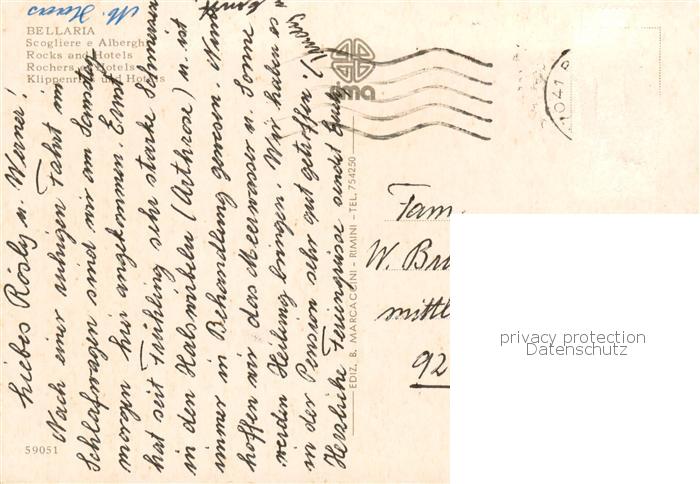 M. Haas
BELLARIA
Scogliere e Alberghi
Rocks and Hotels
Rochers et Hotels
Klippenriff und Hotels
Liebes Rösly u. Werner!
Nach einer ruhigen Fahrt im
Schlafwagen sind wir am Samstag
morgen hier angekommen. Ernst
hat seit Frühling sehr starke Schmerzen
in den Halswirbeln (Arthrose) u. ist
immer in Behandlung gewesen. Nun
hoffen wir das Meerwasser u. Sonne
werden Heilung bringen. Wir haben es
in der Pension sehr gut getroffen.
Herzliche Feriengrüsse sendet Euch
59051
EDIZ. B. MARCACCINI - RIMINI - TEL. 754250
sima
1041
Fam.
W. Bru
mittl
92
privacy protection
Datenschutz